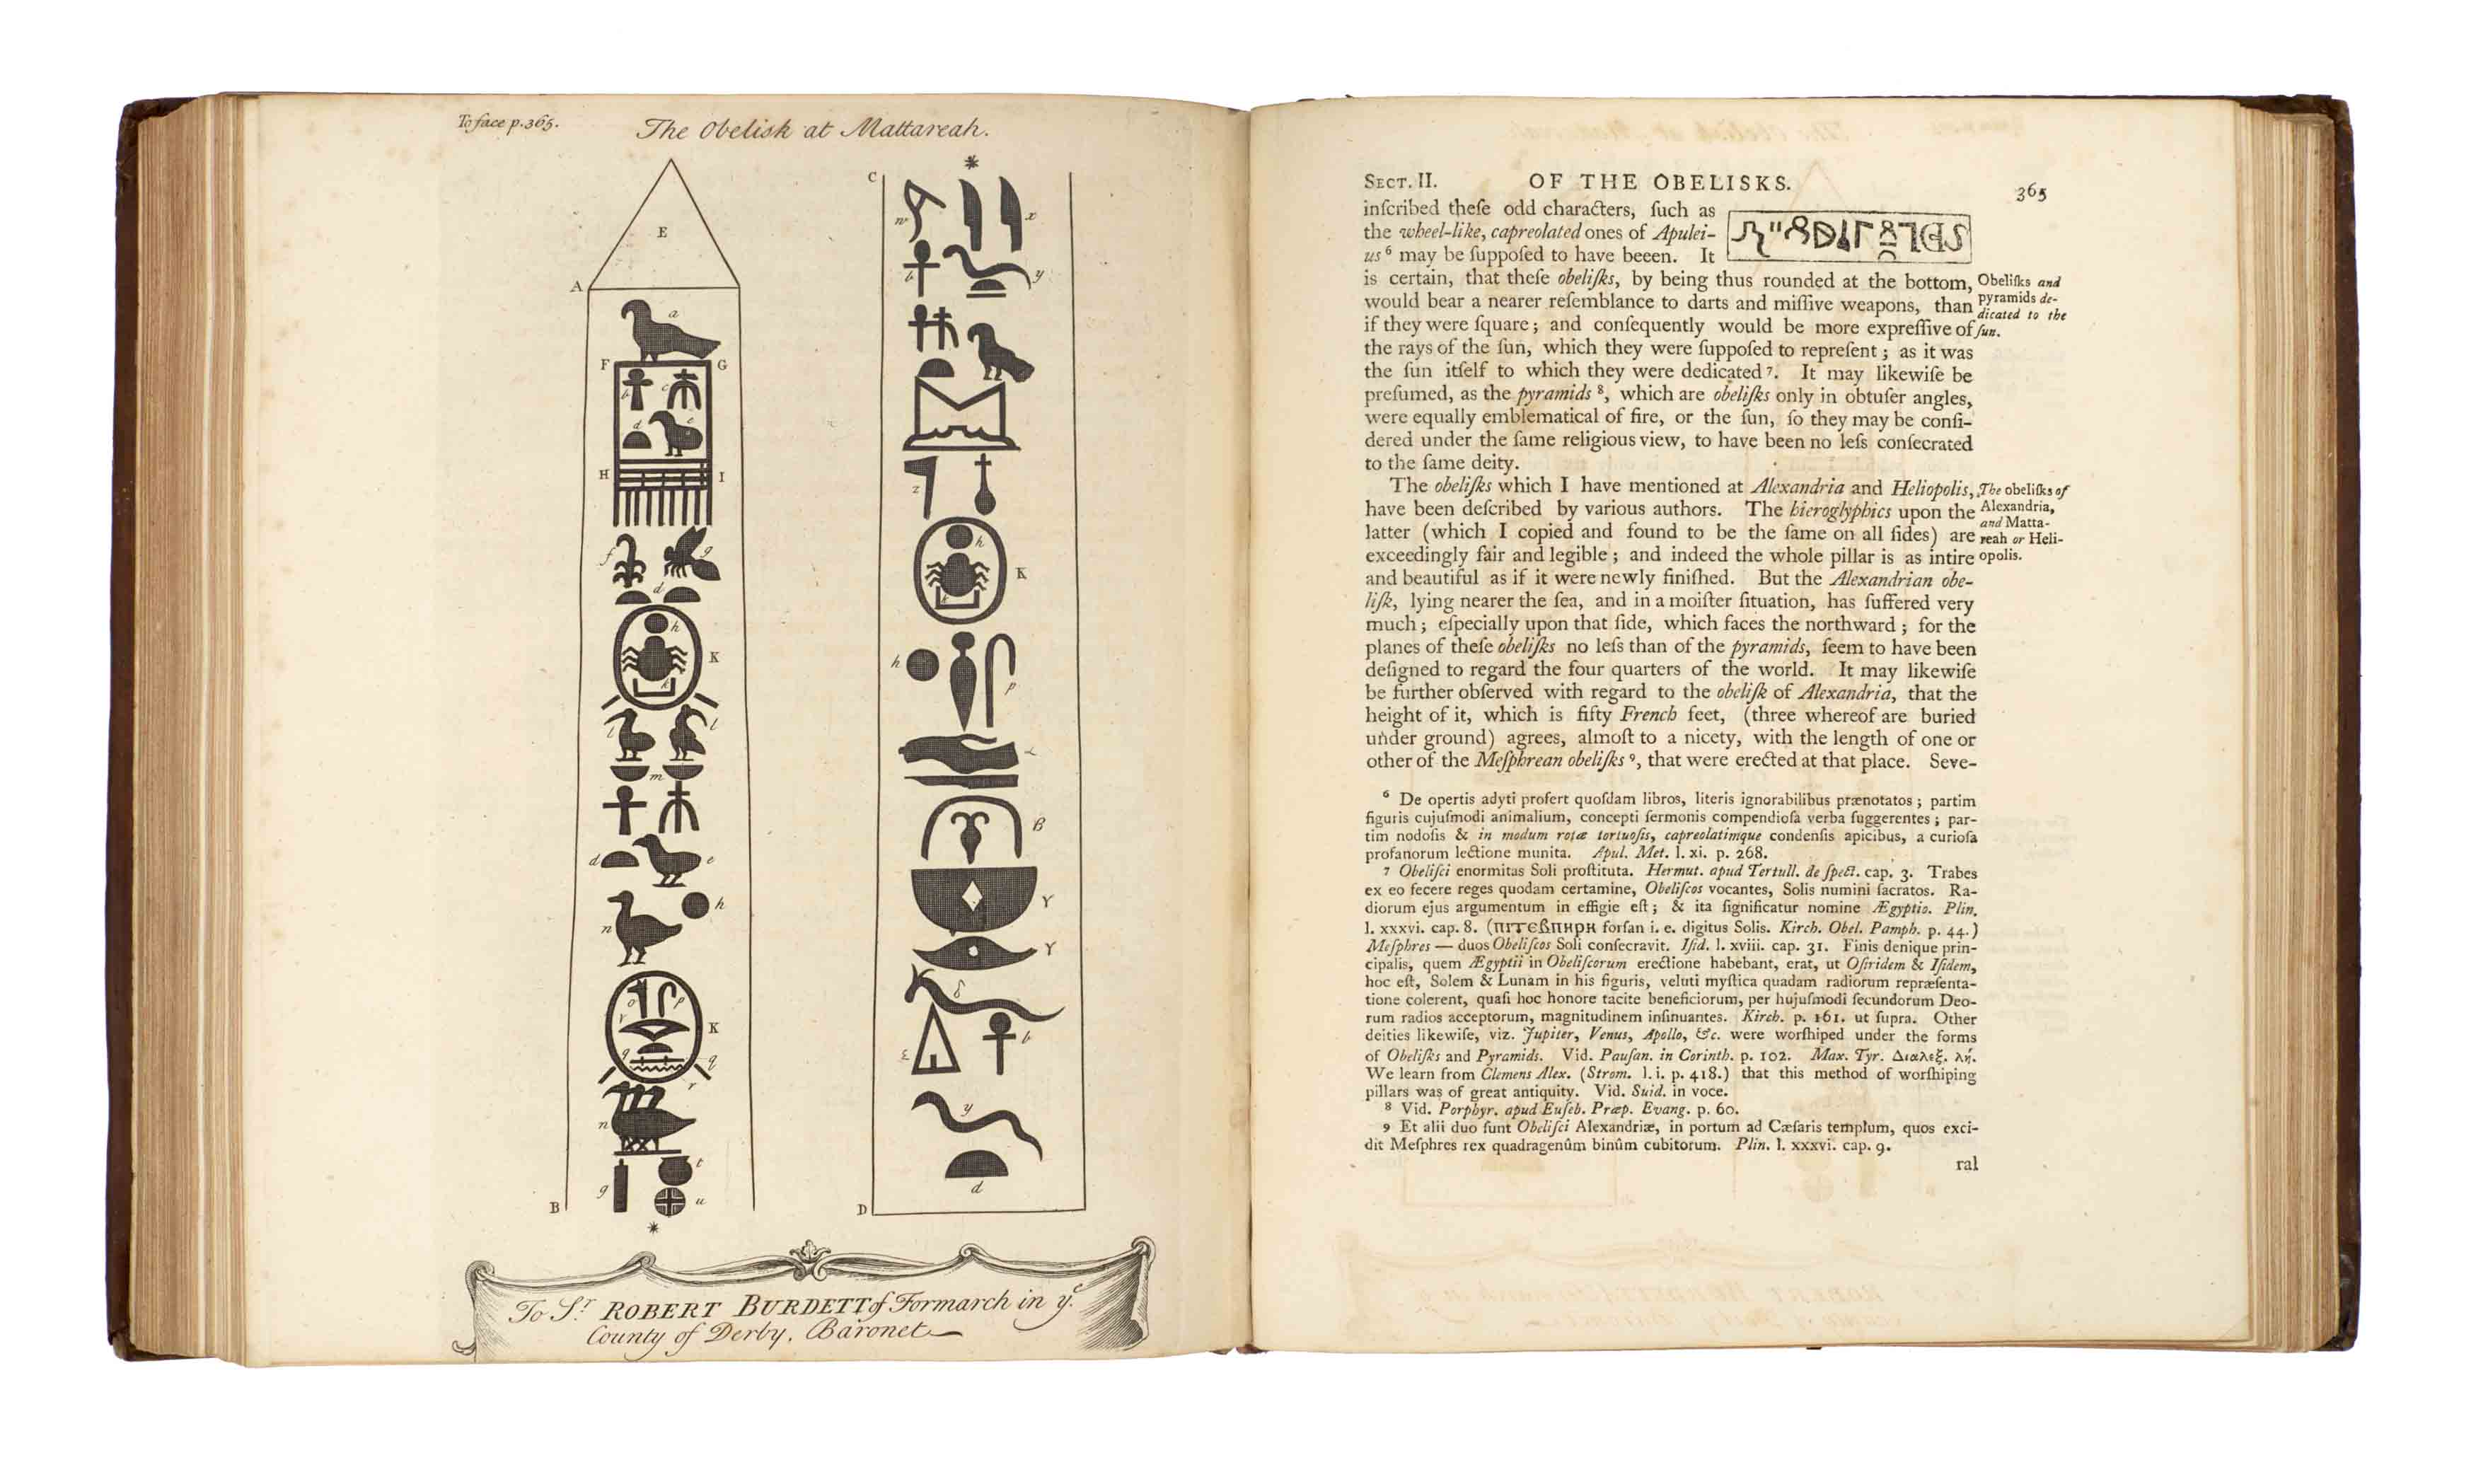 To face p.365.
The Obelisk at Mattareah.
E
A
a
F G
b c
d e
H I
f g
d
h
K
k
l l
m
d e
h
n
K
o p
r
q q
r
n
t
g u
B
*
C
*
w x
b y
z
h
K
k
h
p
α
β
γ
γ
δ
ε b
y
d
D
To Sr. ROBERT BURDETT of Formarch in ye.
County of Derby, Baronet
SECT. II. OF THE OBELISKS. 365
inſcribed theſe odd characters, ſuch as
the wheel-like, capreolated ones of Apulei-
us ⁶ may be ſuppoſed to have beeen. It
is certain, that theſe obeliſks, by being thus rounded at the bottom,
would bear a nearer reſemblance to darts and miſſive weapons, than
if they were ſquare; and conſequently would be more expreſſive of
the rays of the ſun, which they were ſuppoſed to repreſent; as it was
the ſun itſelf to which they were dedicated ⁷. It may likewiſe be
preſumed, as the pyramids ⁸, which are obeliſks only in obtuſer angles,
were equally emblematical of fire, or the ſun, ſo they may be conſi-
dered under the ſame religious view, to have been no leſs conſecrated
to the ſame deity.
Obeliſks and
pyramids de-
dicated to the
ſun.
The obeliſks which I have mentioned at Alexandria and Heliopolis,
have been deſcribed by various authors. The hieroglyphics upon the
latter (which I copied and found to be the ſame on all ſides) are
exceedingly fair and legible; and indeed the whole pillar is as intire
and beautiful as if it were newly finiſhed. But the Alexandrian obe-
liſk, lying nearer the ſea, and in a moiſter ſituation, has ſuffered very
much; eſpecially upon that ſide, which faces the northward; for the
planes of theſe obeliſks no leſs than of the pyramids, ſeem to have been
deſigned to regard the four quarters of the world. It may likewiſe
be further obſerved with regard to the obeliſk of Alexandria, that the
height of it, which is fifty French feet, (three whereof are buried
under ground) agrees, almoſt to a nicety, with the length of one or
other of the Meſphrean obeliſks ⁹, that were erected at that place. Seve-
The obeliſks of
Alexandria,
and Matta-
reah or Heli-
opolis.
⁶ De opertis adyti profert quoſdam libros, literis ignorabilibus prænotatos; partim
figuris cujuſmodi animalium, concepti ſermonis compendioſa verba ſuggerentes; par-
tim nodoſis & in modum rotæ tortuoſis, capreolatimque condenſis apicibus, a curioſa
profanorum lectione munita. Apul. Met. l. xi. p. 268.
⁷ Obeliſci enormitas Soli proſtituta. Hermut. apud Tertull. de ſpect. cap. 3. Trabes
ex eo fecere reges quodam certamine, Obeliſcos vocantes, Solis numini ſacratos. Ra-
diorum ejus argumentum in effigie eſt; & ita ſignificatur nomine Ægyptio. Plin.
l. xxxvi. cap. 8. (ⲡⲓⲧⲉⲃⲡⲏⲣⲏ forſan i. e. digitus Solis. Kirch. Obel. Pamph. p. 44.)
Meſphres — duos Obeliſcos Soli conſecravit. Iſid. l. xviii. cap. 31. Finis denique prin-
cipalis, quem Ægyptii in Obeliſcorum erectione habebant, erat, ut Oſiridem & Iſidem,
hoc eſt, Solem & Lunam in his figuris, veluti myſtica quadam radiorum repræſenta-
tione colerent, quaſi hoc honore tacite beneficiorum, per hujuſmodi ſecundorum Deo-
rum radios acceptorum, magnitudinem inſinuantes. Kirch. p. 161. ut ſupra. Other
deities likewiſe, viz. Jupiter, Venus, Apollo, &c. were worſhiped under the forms
of Obeliſks and Pyramids. Vid. Pauſan. in Corinth. p. 102. Max. Tyr. Διαλεξ. λή.
We learn from Clemens Alex. (Strom. l. i. p. 418.) that this method of worſhiping
pillars was of great antiquity. Vid. Suid. in voce.
⁸ Vid. Porphyr. apud Euſeb. Præp. Evang. p. 60.
⁹ Et alii duo ſunt Obeliſci Alexandriæ, in portum ad Cæſaris templum, quos exci-
dit Meſphres rex quadragenûm binûm cubitorum. Plin. l. xxxvi. cap. 9.
ral